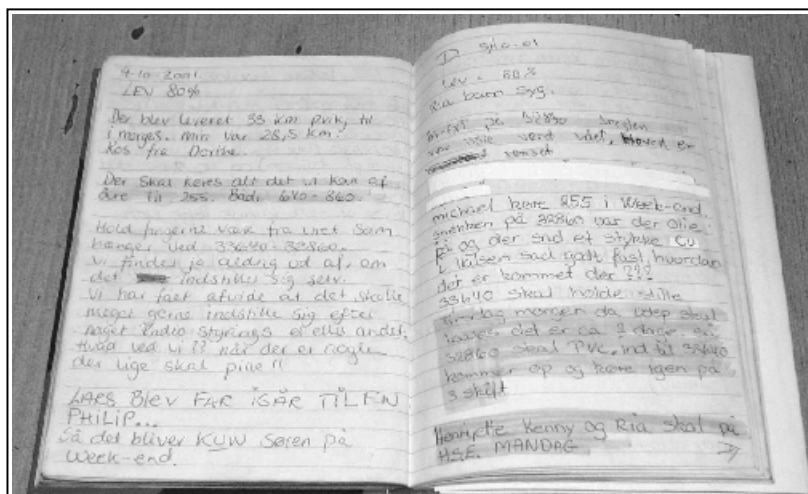 9-10-2001.
LEV 80%
Der blev leveret 33 km pvik, til
i morges. min var 28,5 km.
Ros fra Dorthe.
Der skal køres alt det vi kan af
åre til 255. Både 640-860.
Hold fingrene væk fra uret som
hænger ved 33640-32860.
Vi finder jo aldrig ud af, om
det indstiller sig selv.
Vi har fået afvide at det skulle
meget gerne indstille sig efter
noget Radio styrings el eller andet.
Hvad ved vi ?? når der er nogle
der lige skal pille !!
LARS BLEV FAR IGÅR TIL EN
PHILIP...
Så det bliver KUN Søren på
Week-end.
D 5/10-01
Lev = 80%
Ria barn syg.
på 32860
vået, Hoven er
renset
michael køre 255 i Week-end.
snekken på 32860 var der olie
i og der sad et stykke CU
i kilsem sad godt fast, hvordan
det er kommet der ???
33640 skal holde stille
morgen da skal
det er ca 2 dage, så
32860 skal PVC. ind til 33640
kommer op og køre igen på
3 skift
Henriette Kenny og Ria skal på
H.S.E. MANDAG